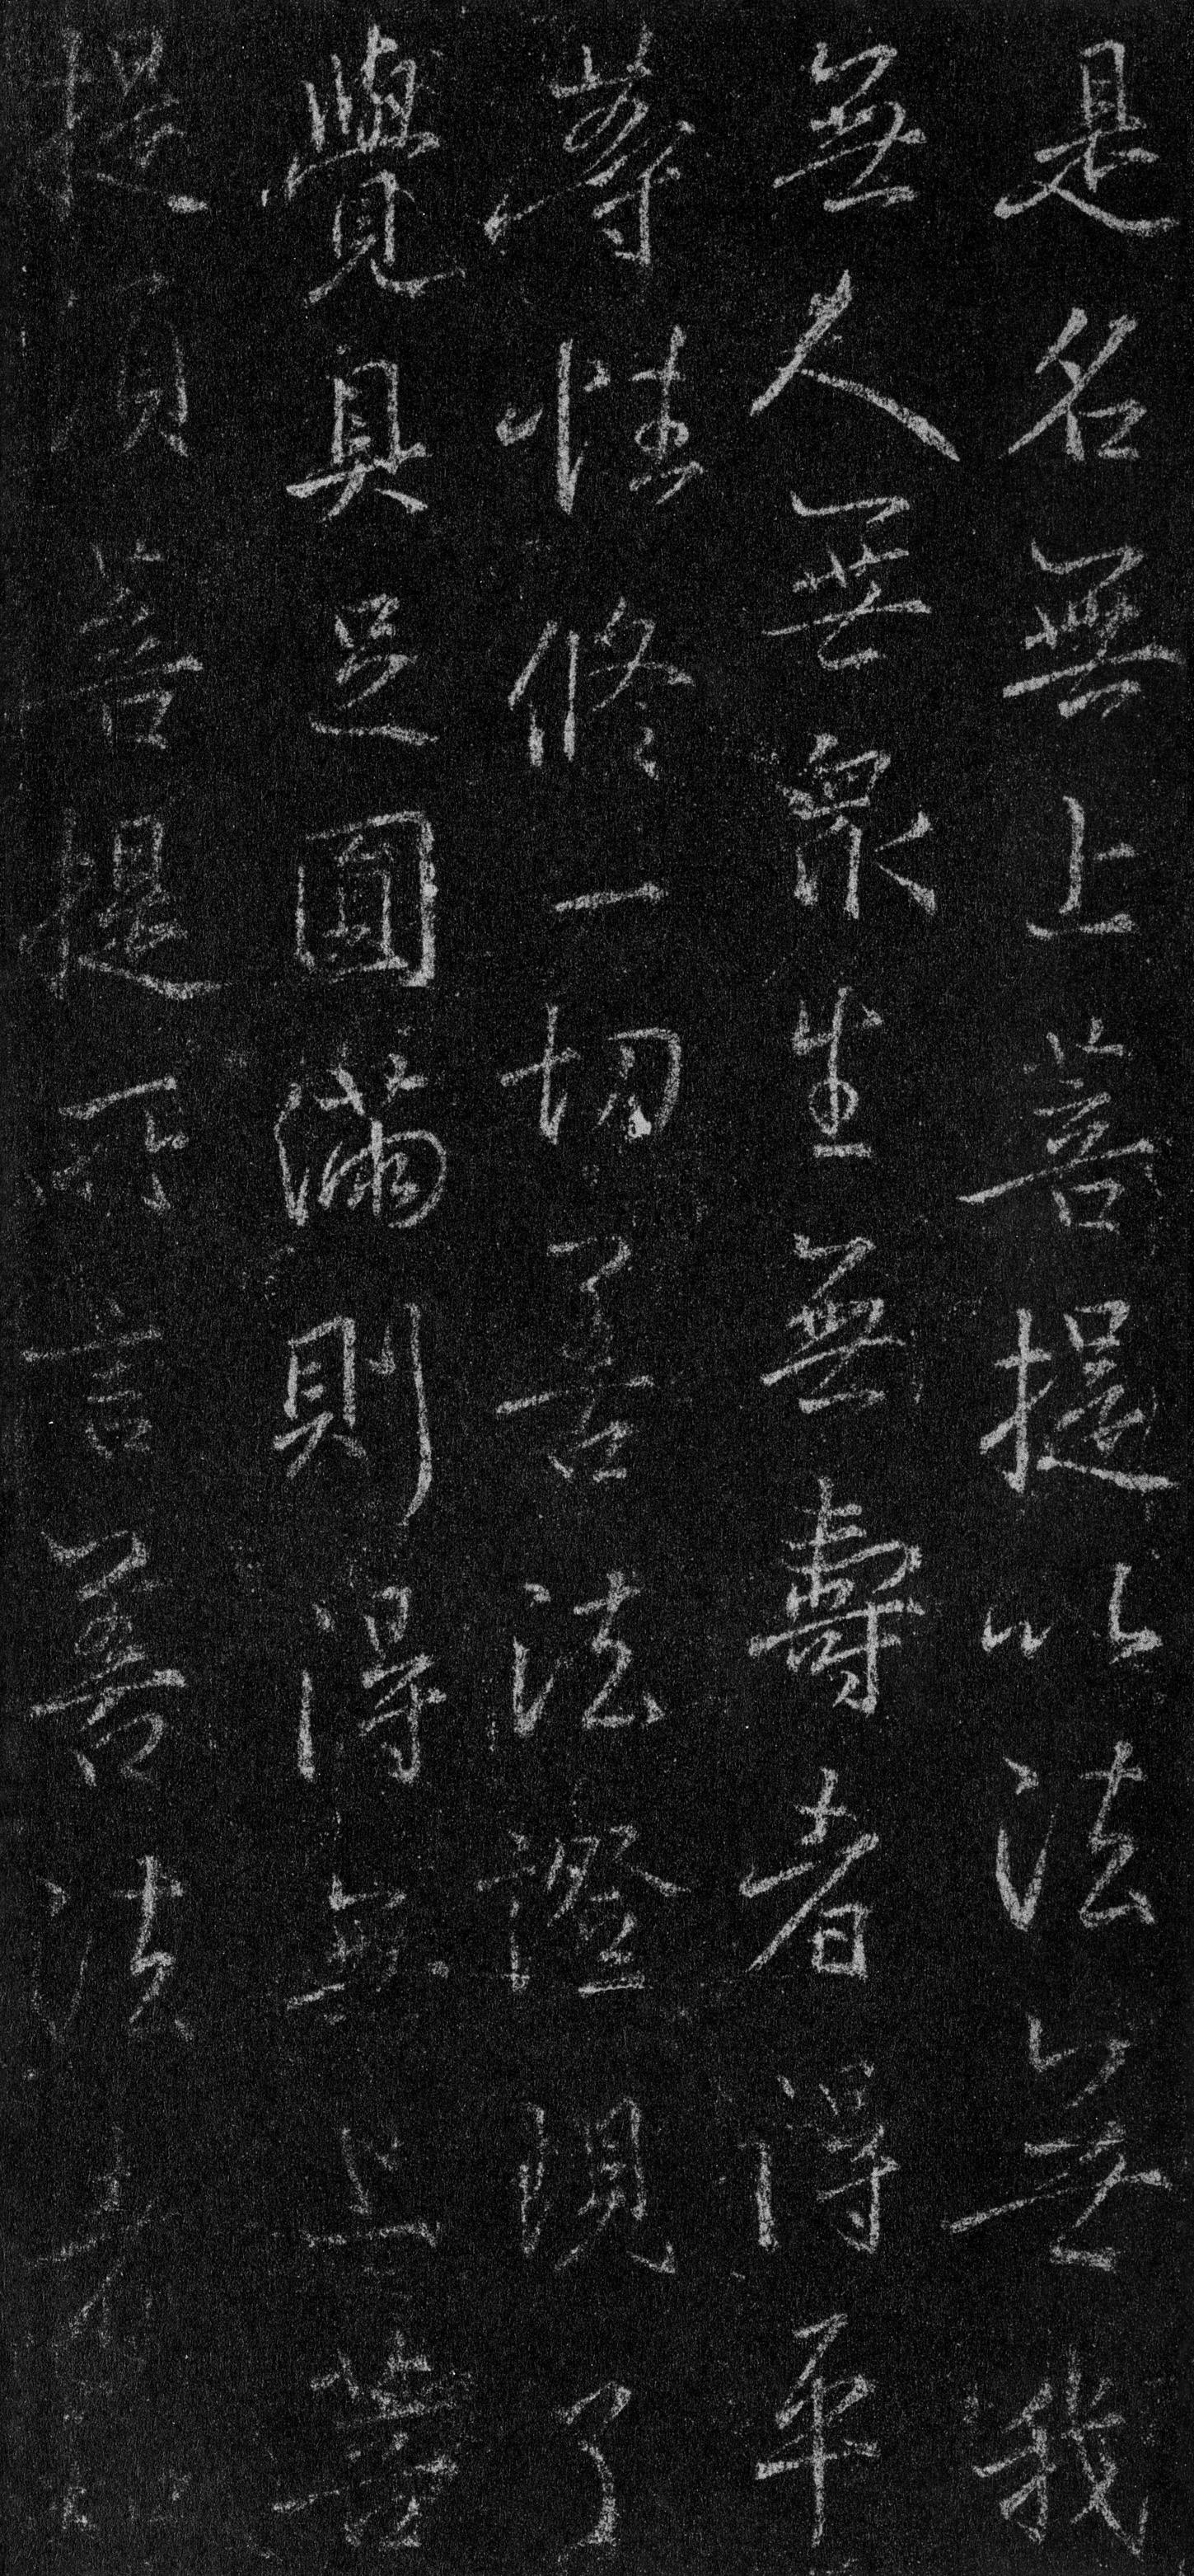 是名無上菩提以法無我
無人無衆生無壽者得平
等性修一切善法證現了
覺具足圓滿則得無上菩
提須菩提所言善法者